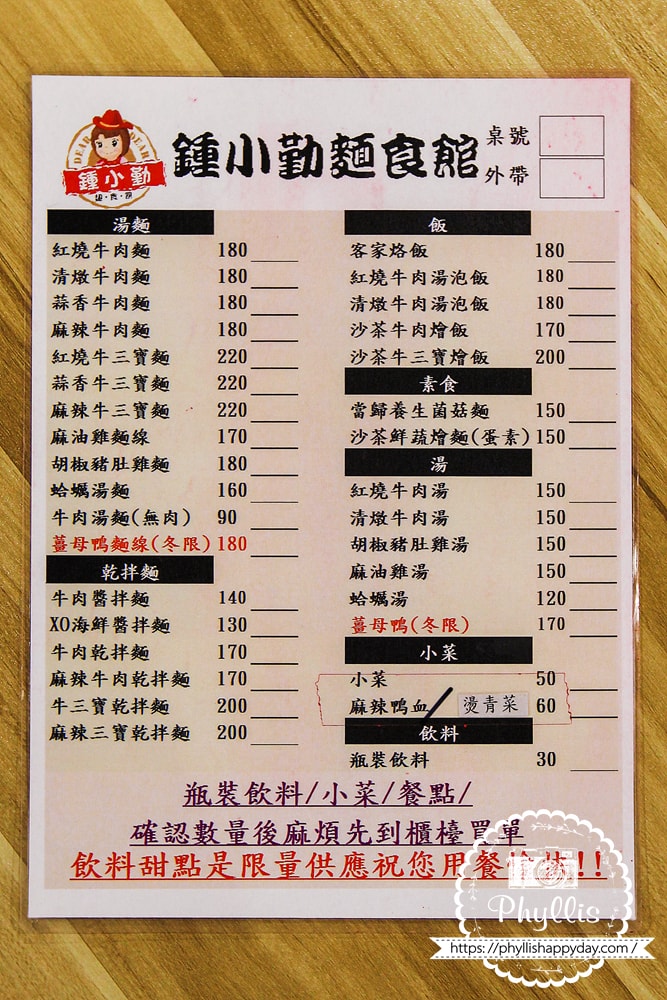 DEAR DEAR
鍾小勤
麵・食・館
鍾小勤麵食館
桌號
外帶
湯麵
紅燒牛肉麵 180
清燉牛肉麵 180
蒜香牛肉麵 180
麻辣牛肉麵 180
紅燒牛三寶麵 220
蒜香牛三寶麵 220
麻辣牛三寶麵 220
麻油雞麵線 170
胡椒豬肚雞麵 180
蛤蠣湯麵 160
牛肉湯麵(無肉) 90
薑母鴨麵線(冬限) 180
乾拌麵
牛肉醬拌麵 140
XO海鮮醬拌麵 130
牛肉乾拌麵 170
麻辣牛肉乾拌麵 170
牛三寶乾拌麵 200
麻辣三寶乾拌麵 200
飯
客家烙飯 180
紅燒牛肉湯泡飯 180
清燉牛肉湯泡飯 180
沙茶牛肉燴飯 170
沙茶牛三寶燴飯 200
素食
當歸養生菌菇麵 150
沙茶鮮蔬燴麵(蛋素) 150
湯
紅燒牛肉湯 150
清燉牛肉湯 150
胡椒豬肚雞湯 150
麻油雞湯 150
蛤蠣湯 120
薑母鴨(冬限) 170
小菜
小菜 50
麻辣鴨血/燙青菜 60
飲料
瓶裝飲料 30
瓶裝飲料/小菜/餐點/
確認數量後麻煩先到櫃檯買單
飲料甜點是限量供應祝您用餐愉快!!
Phyllis
https://phyllishappyday.com/